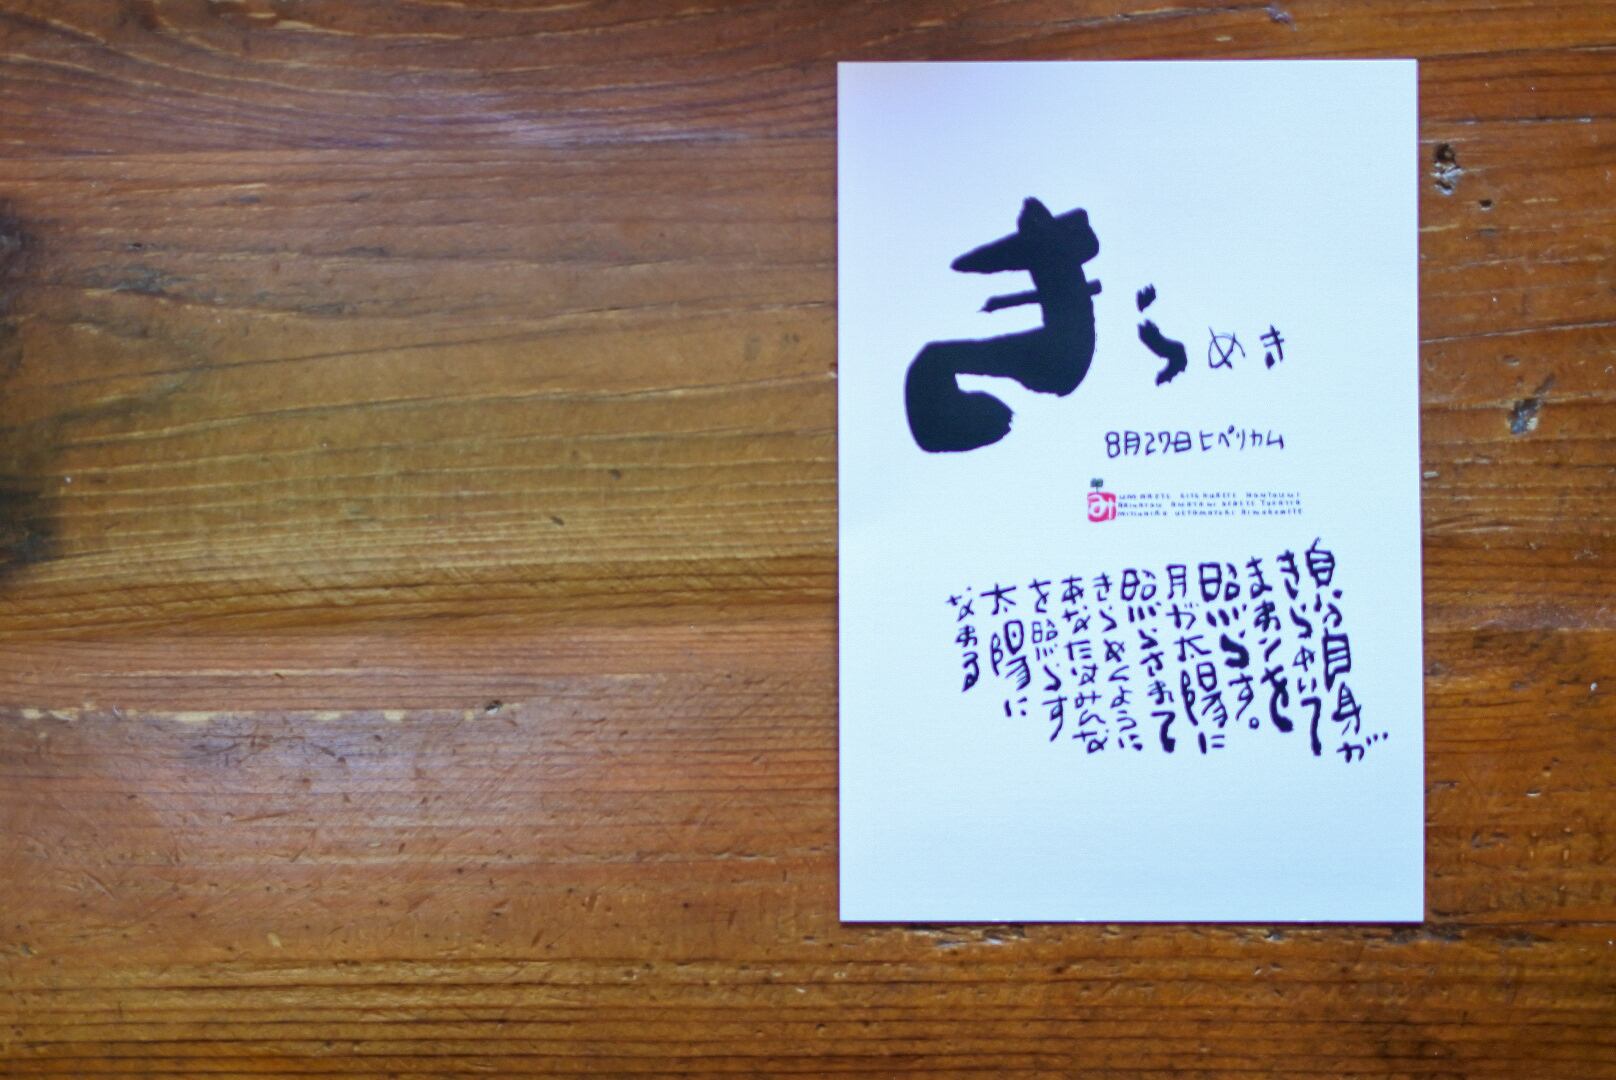 きらめき
8月27日 ヒペリカム
み
UMARETE KITEKURETE HONTOUNI
ARIGATOU
自分自身が
きらめいて
まわりを
照らす。
月が太陽に
照らされて
きらめくように
あなたはみんな
を照らす
太陽に
なれる